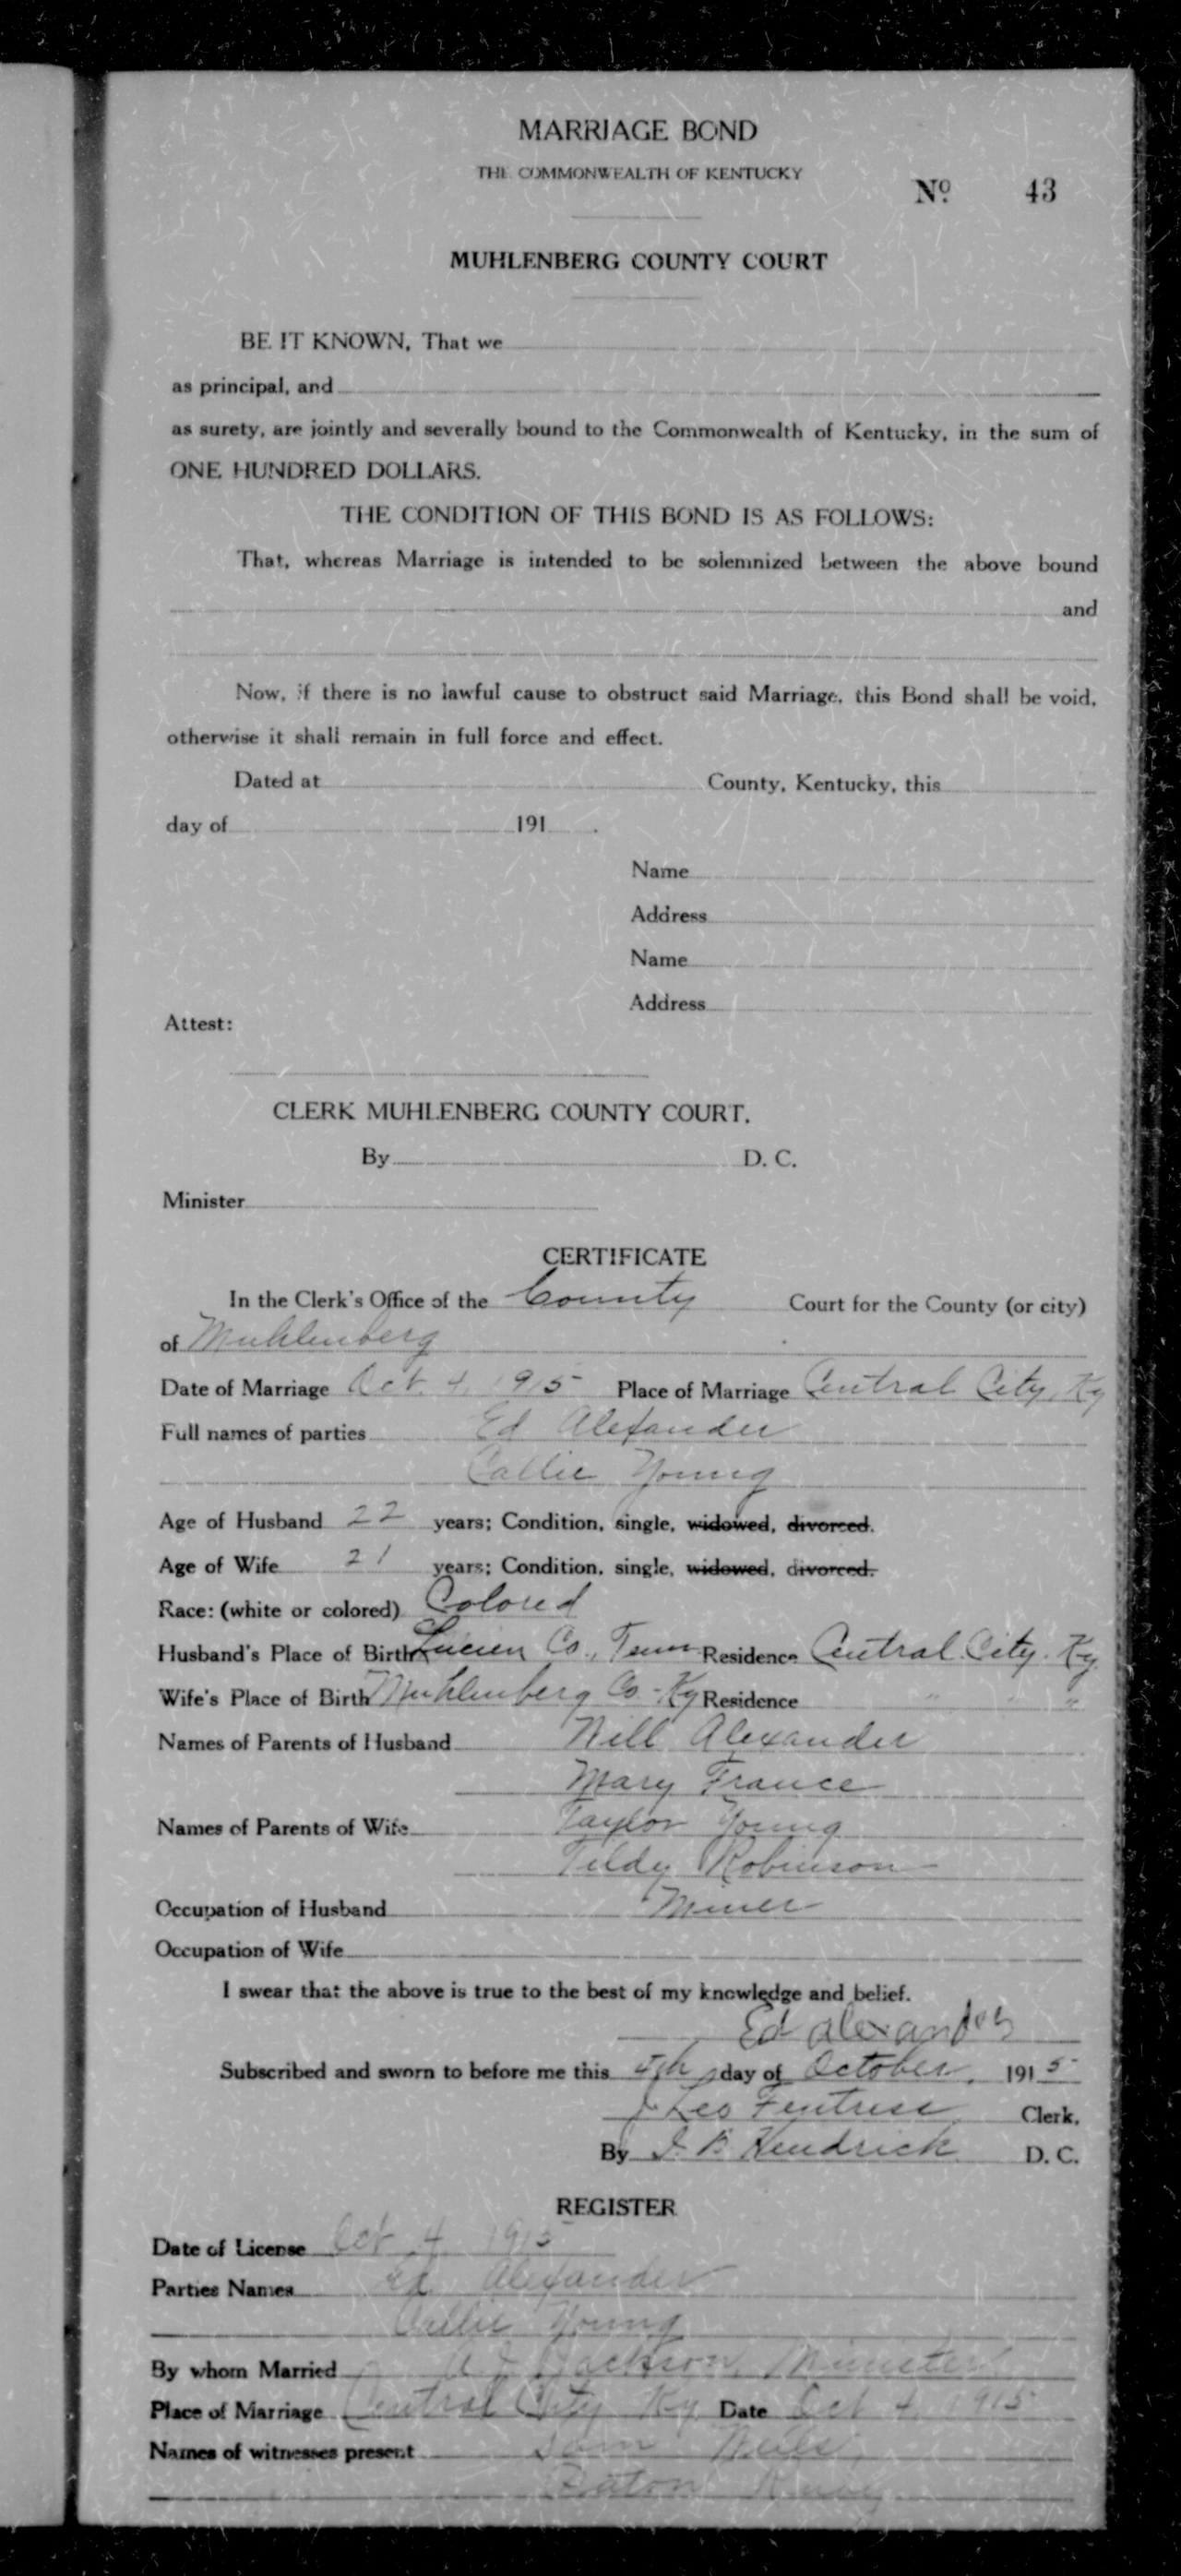 MARRIAGE BOND
THE COMMONWEALTH OF KENTUCKY
No. 43
MUHLENBERG COUNTY COURT
BE IT KNOWN, That we
as principal, and
as surety, are jointly and severally bound to the Commonwealth of Kentucky, in the sum of
ONE HUNDRED DOLLARS.
THE CONDITION OF THIS BOND IS AS FOLLOWS:
That, whereas Marriage is intended to be solemnized between the above bound
and
Now, if there is no lawful cause to obstruct said Marriage, this Bond shall be void,
otherwise it shall remain in full force and effect.
Dated at County, Kentucky, this
day of 191 .
Name
Address
Name
Address
Attest:
CLERK MUHLENBERG COUNTY COURT.
By D. C.
Minister
CERTIFICATE
In the Clerk's Office of the County Court for the County (or city)
of Muhlenberg
Date of Marriage Oct. 4, 1915 Place of Marriage Central City, Ky
Full names of parties Ed Alexander
Callie Young
Age of Husband 22 years; Condition, single, widowed, divorced.
Age of Wife 21 years; Condition, single, widowed, divorced.
Race: (white or colored) Colored
Husband's Place of Birth Co., Tenn Residence Central City, Ky
Wife's Place of Birth Muhlenberg Co - Ky Residence " " "
Names of Parents of Husband Will Alexander
Mary France
Names of Parents of Wife Taylor Young
Tildy Robinson
Occupation of Husband Miner
Occupation of Wife
I swear that the above is true to the best of my knowledge and belief.
Ed alexander
Subscribed and sworn to before me this day of October, 1915
J Leo Fentress Clerk,
By Kendrick D. C.
REGISTER
Date of License Oct 4 1915
Parties Names Ed Alexander
Callie Young
By whom Married Jackson, Minister
Place of Marriage Central City Ky Date Oct 4, 1915
Names of witnesses present Sam